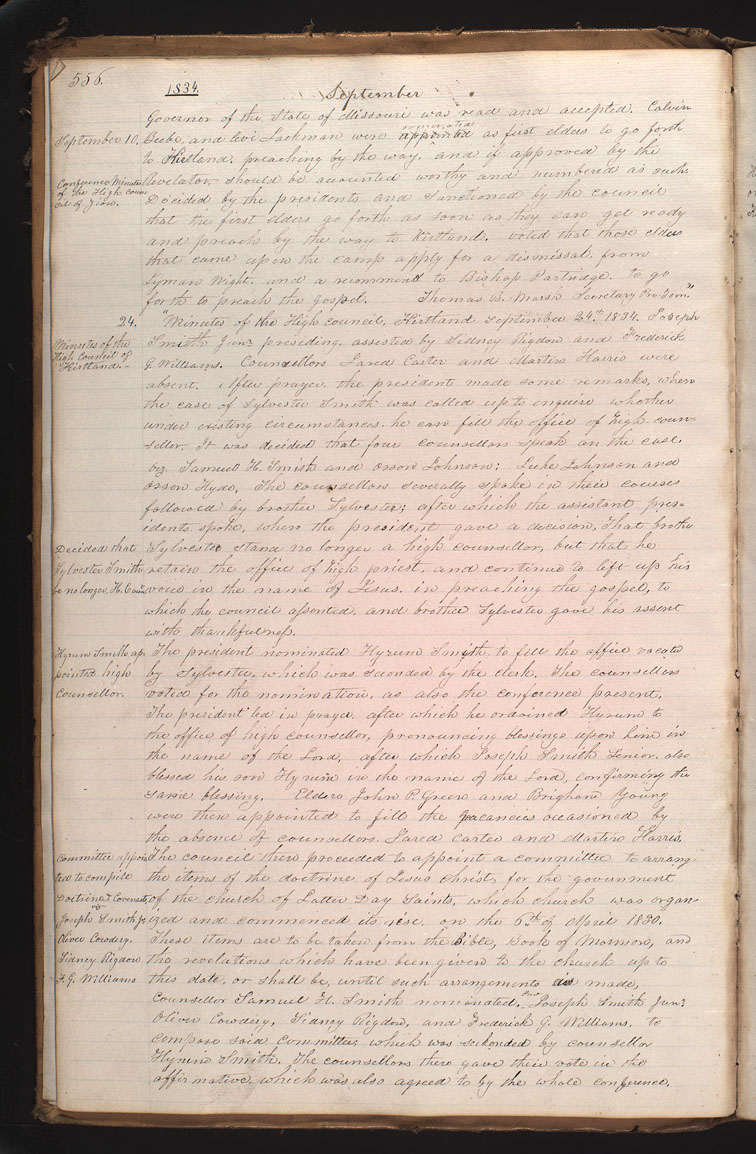 556.
1834.
September
Governor of the State of Missouri was read and accepted. Calvin
September 10. Beebe, and Levi Jackman were appointed nominated as first elders to go forth
to Kirtland, preaching by the way, and if approved by the
Conference Minutes Revelator should be accounted worthy and numbered as such.
of the High Coun-
cil of Zion. Decided by the presidents and sanctioned by the council
that the first elders go forth as soon as they can get ready
and preach by the way to Kirtland. voted that those elders
that came up in the camp apply for a dismissal from
Lyman Wight, and a recommend to Bishop Partridge, to go
forth to preach the gospel. Thomas B. Marsh Secretary Pro Tem."
24. "Minutes of the High council, Kirtland September 24th 1834. Joseph
Minutes of the Smith Junr. presiding, assisted by Sidney Rigdon and Frederick
High Council of
Kirtland.- G. Williams. Counsellors Jared Carter and Martin Harris were
absent. After prayer the president made some remarks, when
the case of Sylvester Smith was called up to enquire whether
under existing circumstances he can fill the office of high coun-
sellor. It was decided that four counsellors speak on the case.
viz. Samuel H. Smith and Orson Johnson: Luke Johnson and
Orson Hyde. The counsellors severally spoke in their courses
followed by brother Sylvester; after which the assistant pres-
idents spoke, when the president gave a decision, That brother
Decided that Sylvester stand no longer a high counsellor, but that he
Sylvester Smith retain the office of high priest, and continue to lift up his
be no longer H. Coun voice in the name of Jesus, in preaching the gospel, to
which the council assented, and brother Sylvester gave his assent
with thankfulness.
Hyrum Smith ap- The president nominated Hyrum Smyth to fill the office vacated
pointed high by Sylvester, which was seconded by the clerk. The counsellors
Counsellor. voted for the nomination, as also the conference present.
The president led in prayer after which he ordained Hyrum to
the office of high counsellor, pronouncing blessings upon him in
the name of the Lord, after which Joseph Smith Senior, also
blessed his son Hyrum in the name of the Lord, confirming the
same blessing. Elders John P. Green and Brigham Young
were then appointed to fill the vacancies occasioned by
the absence of counsellors Jared Carter and Martin Harris.
Committee appoin- The council then proceeded to appoint a committee to arrange
ted to compile the items of the doctrine of Jesus Christ, for the government
Doctrine & Covenants, of the church of Latter Day Saints, which church was organ-
Joseph Smith Jr. ized and commenced its rise, on the 6th of April 1830.
Oliver Cowdery. These items are to be taken from the Bible, Book of Mormon, and
Sidney Rigdon the revelations which have been given to the church up to
F. G. Williams this date, or shall be, until such arrangements are made,
Counsellor Samuel H. Smith nominated, Prt. Joseph Smith Junr.
Oliver Cowdery, Sidney Rigdon, and Frederick G. Williams, to
compose said committee; which was seckonded by counsellor
Hyrum Smith. The counsellors then gave their vote in the
affirmative, which was also agreed to by the whole conference.